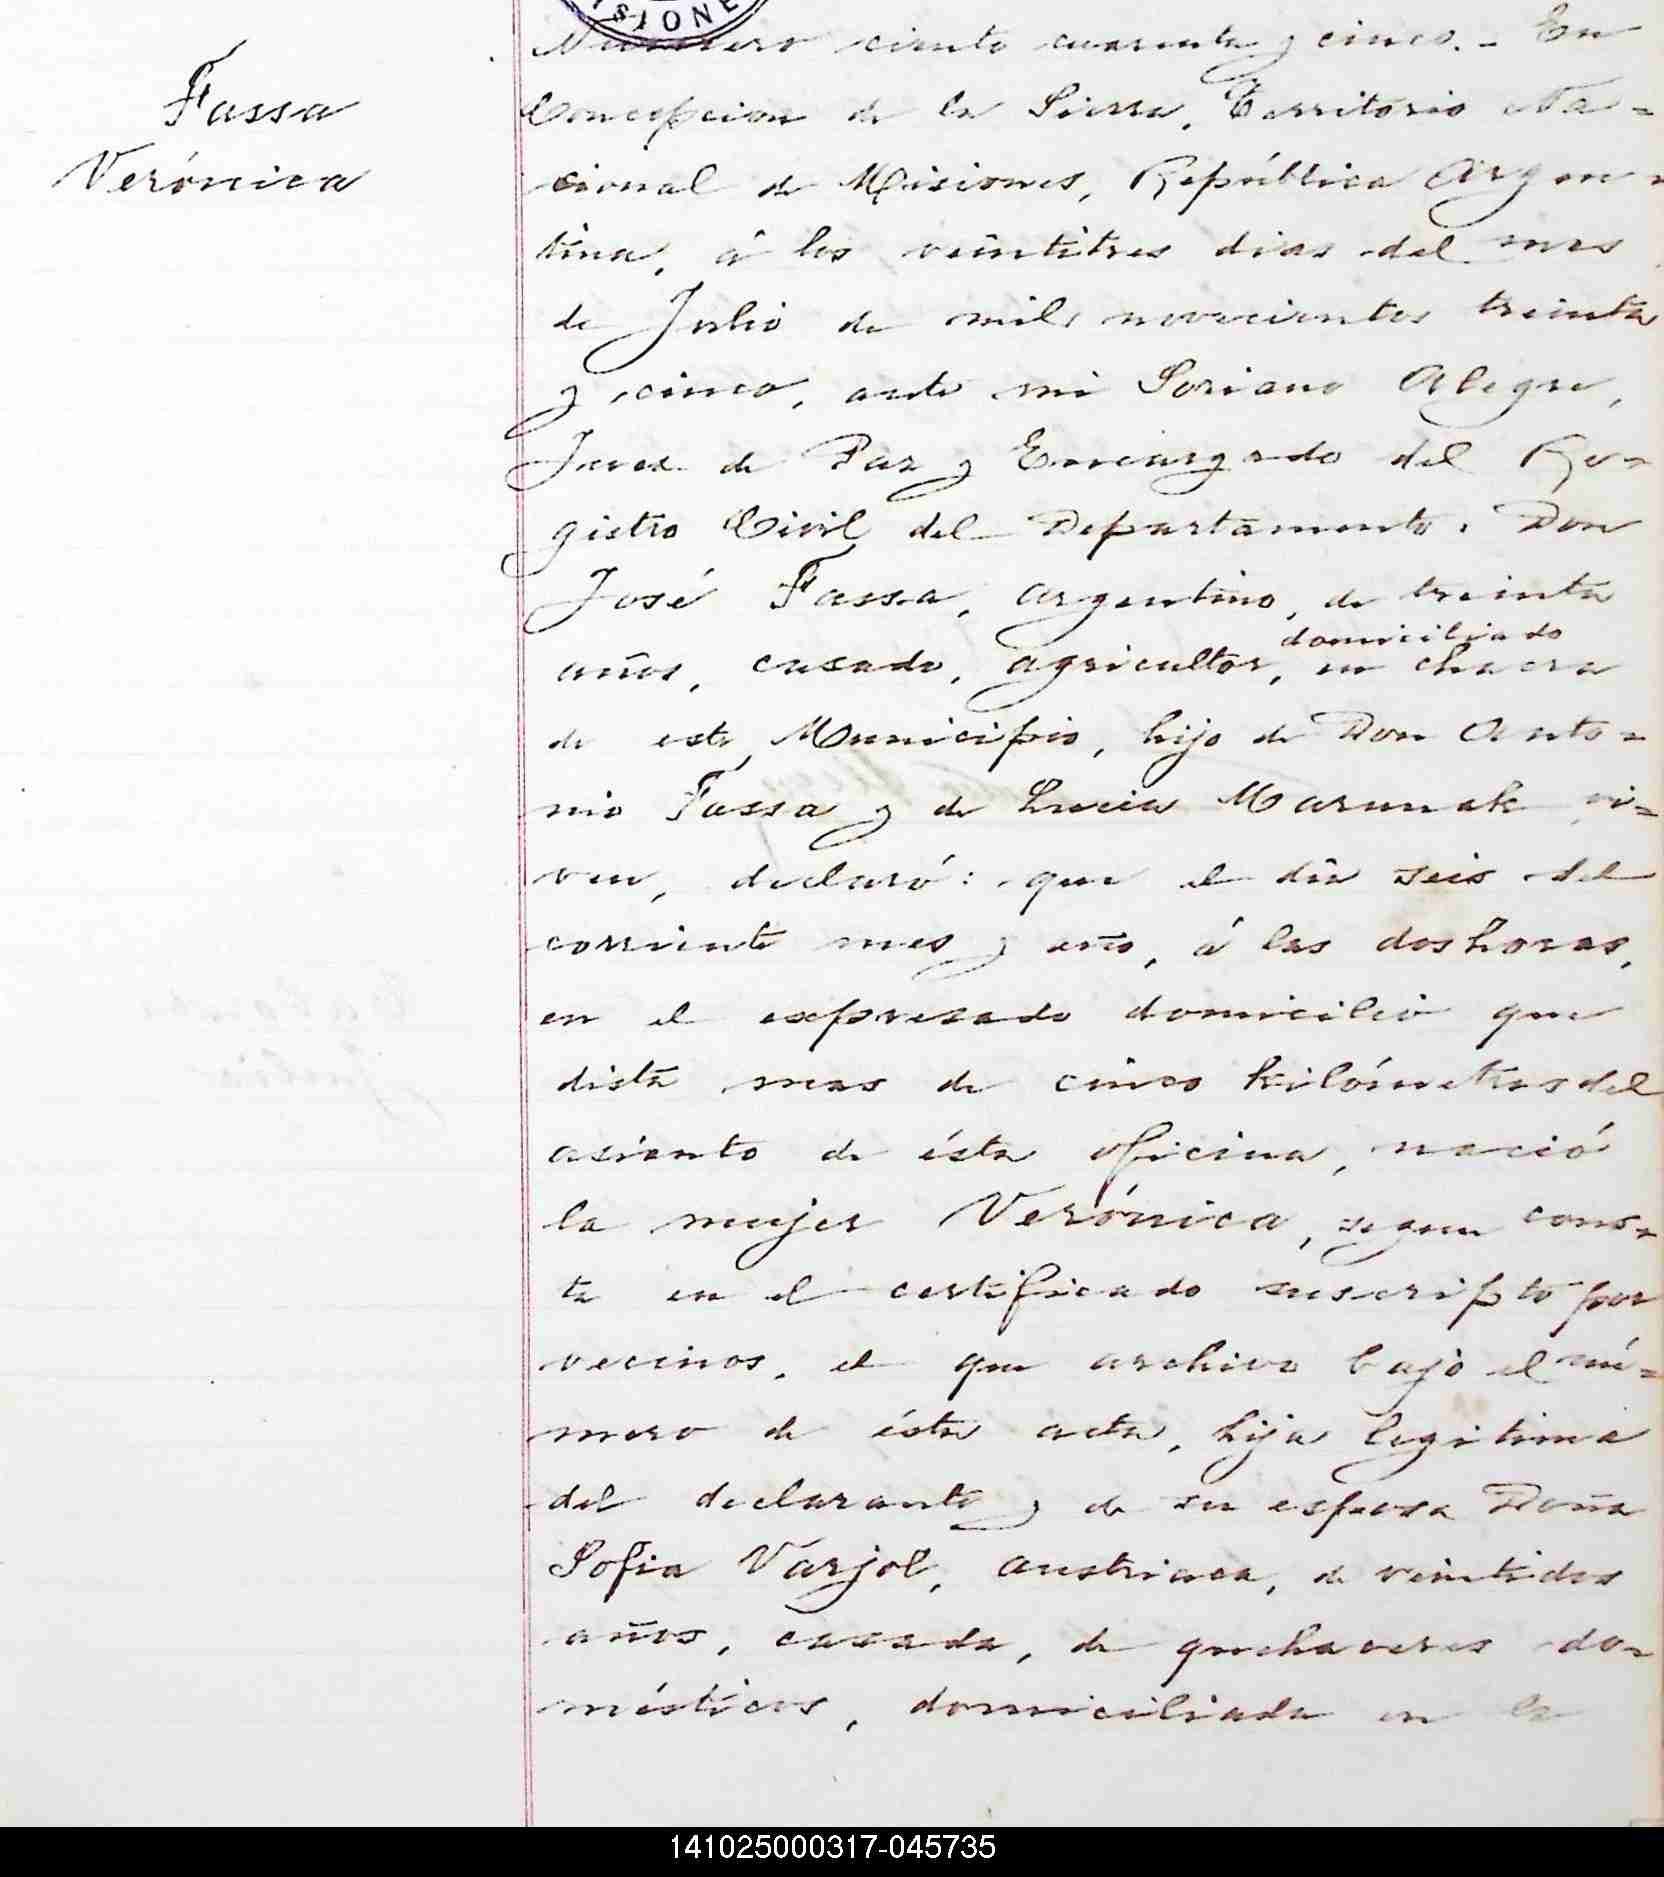 ISIONE
Fassa
Verónica
Número ciento cuarenta y cinco. - En
Concepcion de la Sierra, Territorio Na=
cional de Misiones, República Argen=
tina, á los veintitres dias del mes
de Julio de mil novecientos treinta
y cinco, ante mi Soriano Alegre,
Juez de Paz y Encargado del Re=
gistro Civil del Departamento. Don
José Fassa, argentino, de treinta
domiciliado
años, casado, agricultor, en chacra
de este Municipio, hijo de Don Anto=
nio Fassa y de Lucia Marunak vi=
ven, declaró: que el dia seis del
corriente mes y año, á las dos horas,
en el expresado domicilio que
dista mas de cinco kilómetros del
asiento de ésta oficina, nació
la mujer Verónica, segun cons=
ta en el certificado suscripto por
vecinos, el que archivo bajo el nú=
mero de ésta acta, hija legitima
del declarante y de su esposa Doña
Sofia Varjol, austriaca, de veintidos
años, casada, de quehaceres do=
mésticos, domiciliada en la
141025000317-045735